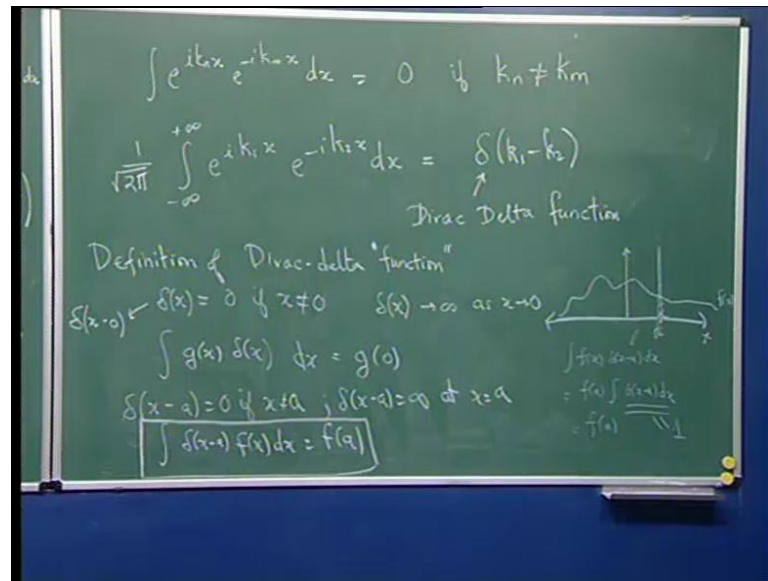 dx
∫ e^{ik_n x} e^{-ik_m x} dx = 0 if k_n ≠ k_m
1/√2π ∫_{-∞}^{+∞} e^{ik_1 x} e^{-ik_2 x} dx = δ(k_1-k_2)
Dirac Delta function
Definition of Dirac-delta "function"
δ(x-0) ← δ(x) = 0 if x≠0 δ(x) → ∞ as x→0
∫ g(x) δ(x) dx = g(0)
δ(x-a)=0 if x≠a ; δ(x-a)=∞ at x=a
∫ δ(x-a) f(x) dx = f(a)
f(x)
a
x
∫ f(x) δ(x-a) dx
= f(a) ∫ δ(x-a) dx
= f(a) 1